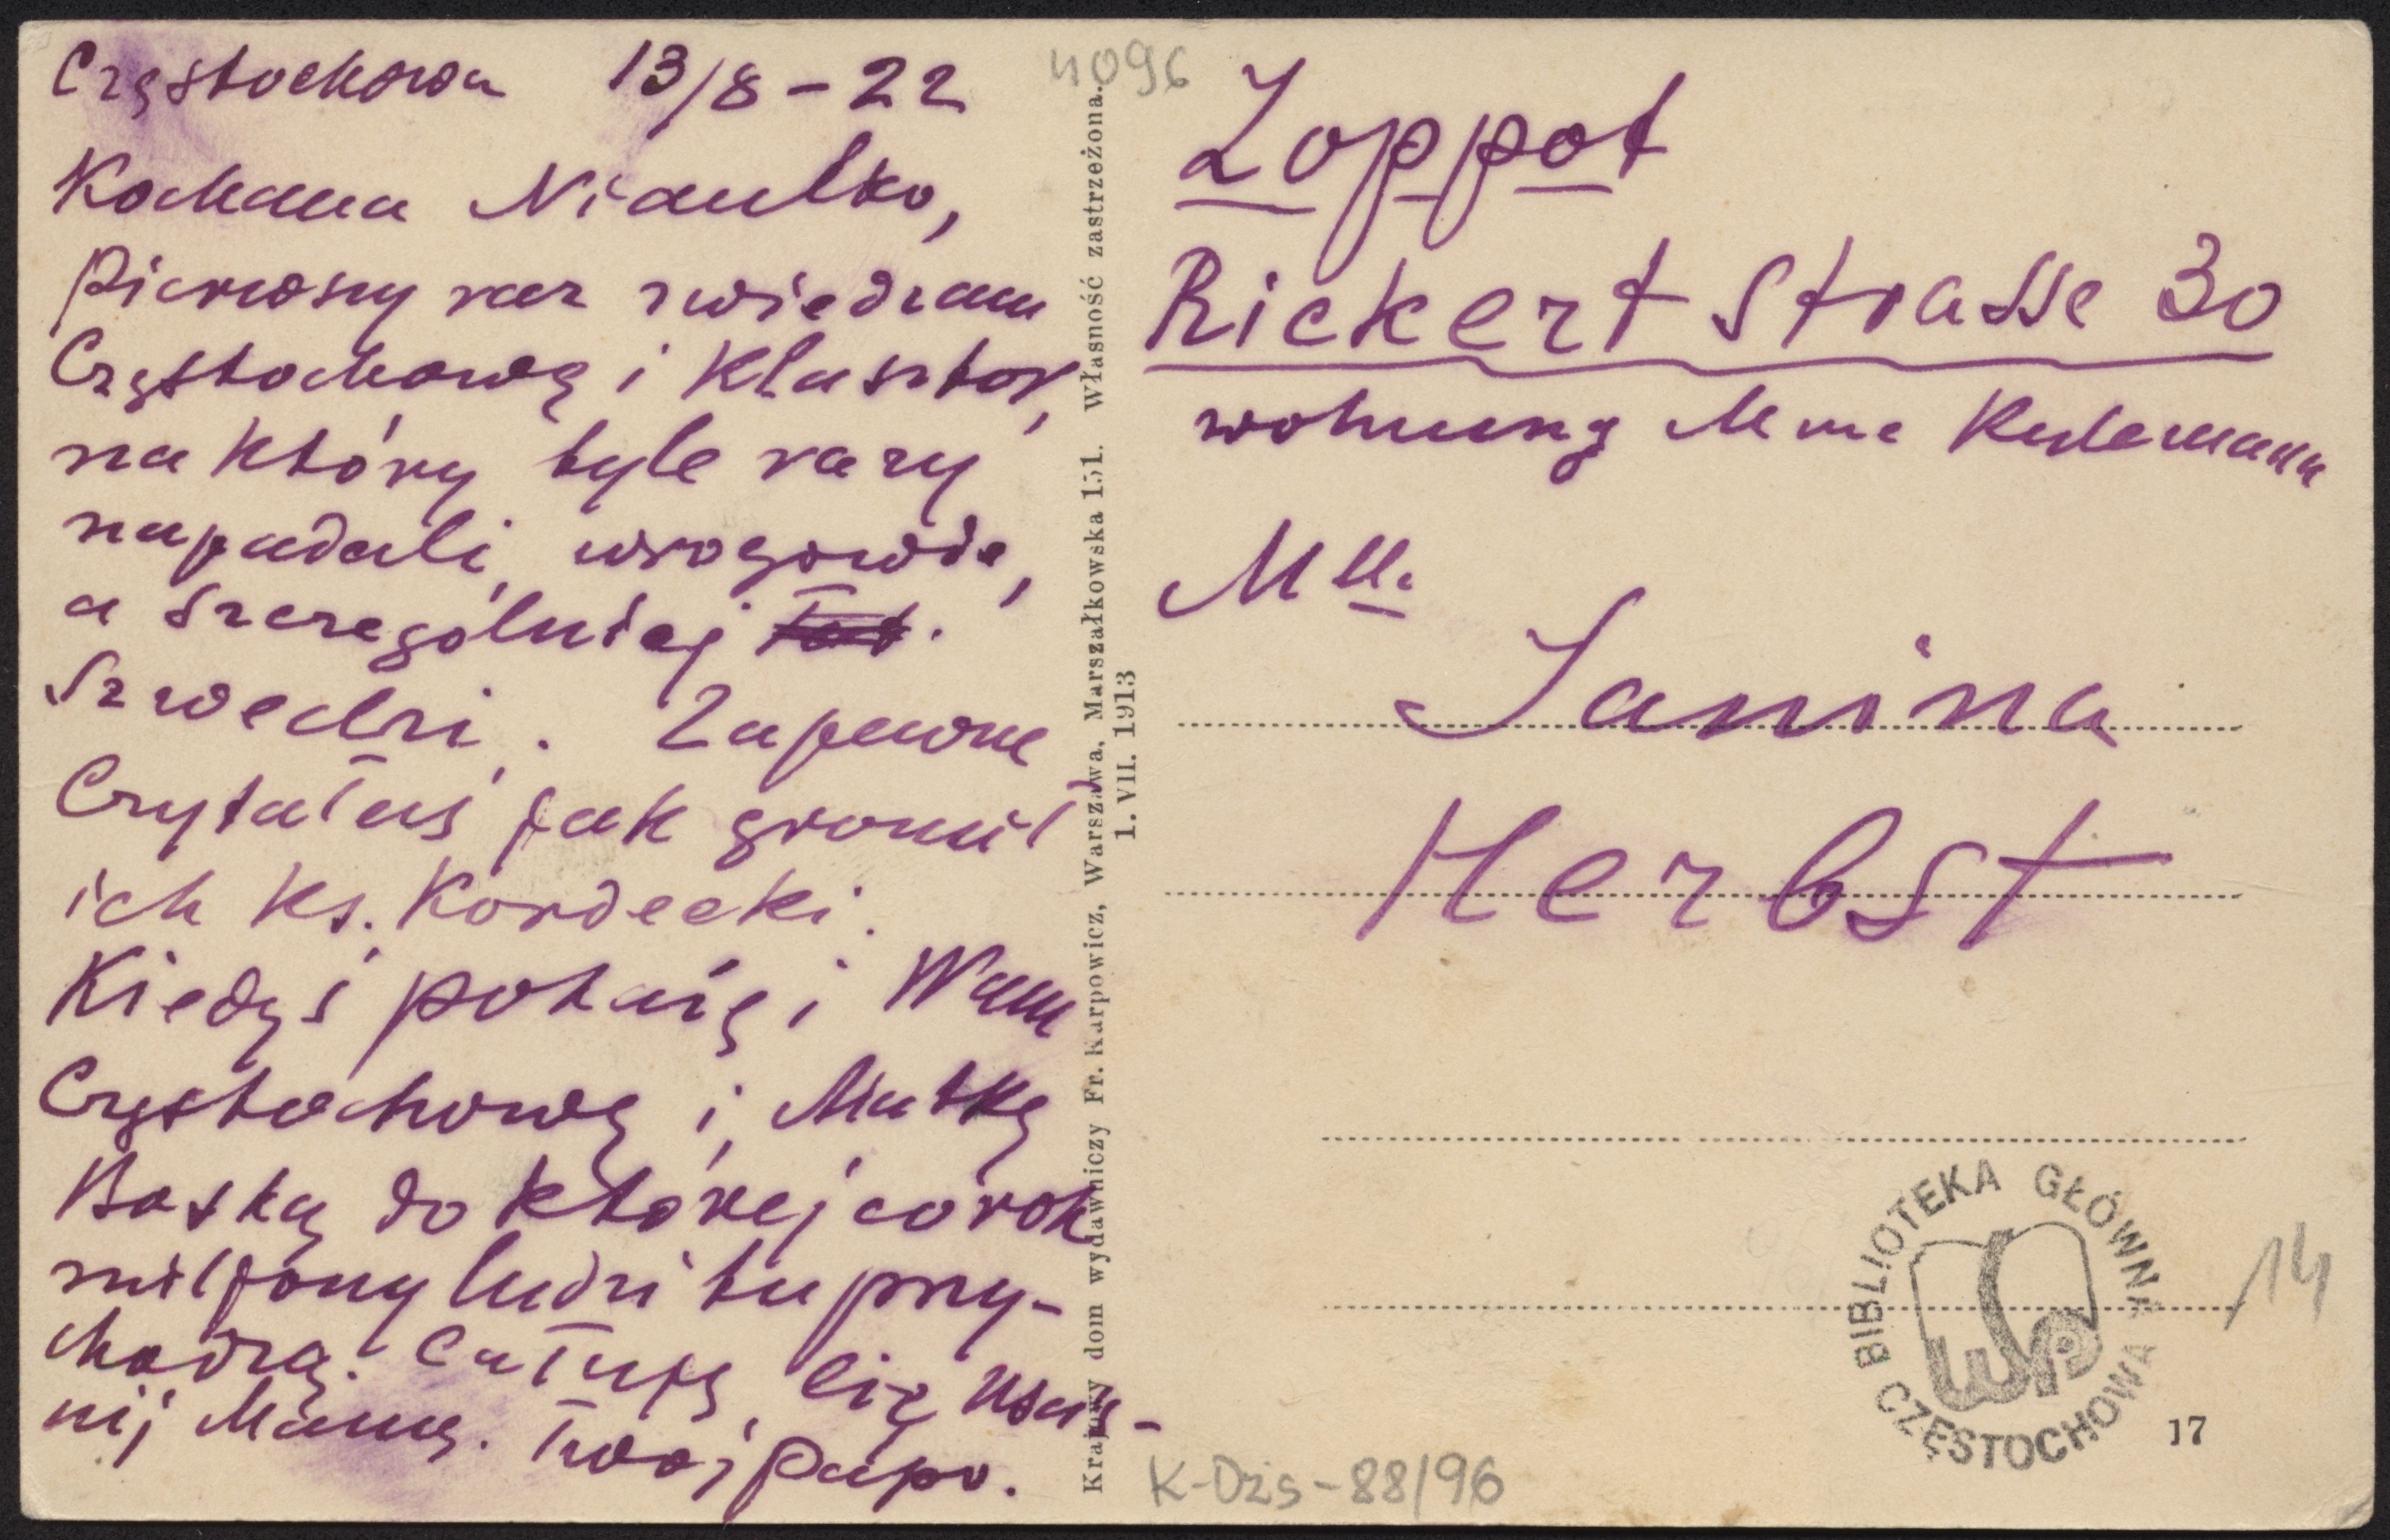 Częstochowa 13/8 – 22
Kochana Niaulko,
Pierwszy raz zwiedzam
Częstochowę i Klasztor,
na który tyle razy
napadali wrogowie,
a szczególniej
Szwedzi. Zapewne
Czytałaś jak gromił
ich ks. Kordecki.
Kiedyś pokażę i Wam
Częstochowę i Matkę
Boską do której co rok
miljony ludzi tu przy-
chodzą. Całuję Cię uściś-
nij Mamę. Twój Papo.
4096
Krajowy dom wydawniczy Fr. Karpowicz, Warszawa, Marszałkowska 151. Własność zastrzeżona.
1. VII. 1913
Zoppot
Rickert Strasse 30
wohnung Mme Kulemann
Mlle.
Janina
Herbst
BIBLIOTEKA GŁÓWNA
WSP
CZĘSTOCHOWA
14
17
K-Dzs-88/96